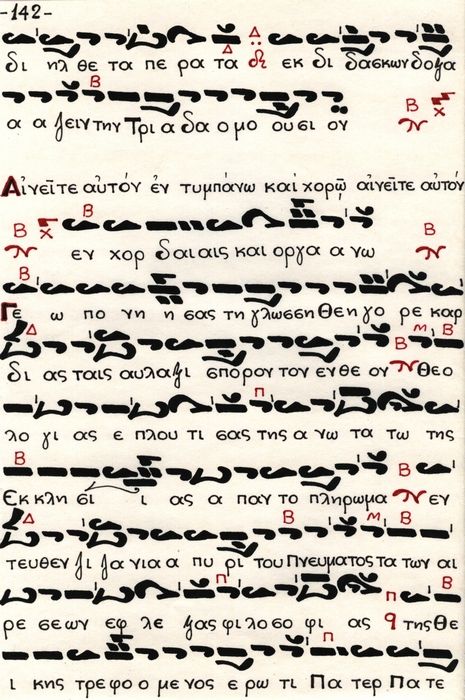 -142-
δι ηλ θε τα πε ρα τα εκ δι δασκων δοξα
α α ζειν την Τρι α δα ο μο ου σι ον
Αἰνεῖτε αὐτόν ἐν τυμπάνω καί χορῶ αἰνεῖτε αὐτόν
εν χορ δαι αις και οργα α νω
Γε ω πο νη η σας τη γλωσση Θεη γο ρε καρ
δι ας ταις αυλα ξι σπορον τον εν θε ον Θεο
λο γι ας ε πλου τι σας της α νω τα τω της
Εκ κλη σι ι ας α παν το πληρωμα εν
τευθεν ζι ζα νια α πυ ρι του Πνευματος τα των αι
ρε σε ων εφ λε ξας φι λο σο φι ας της Θε
ι κης τρε φο ο με νος ε ρω τι Πα τερ Πα τε